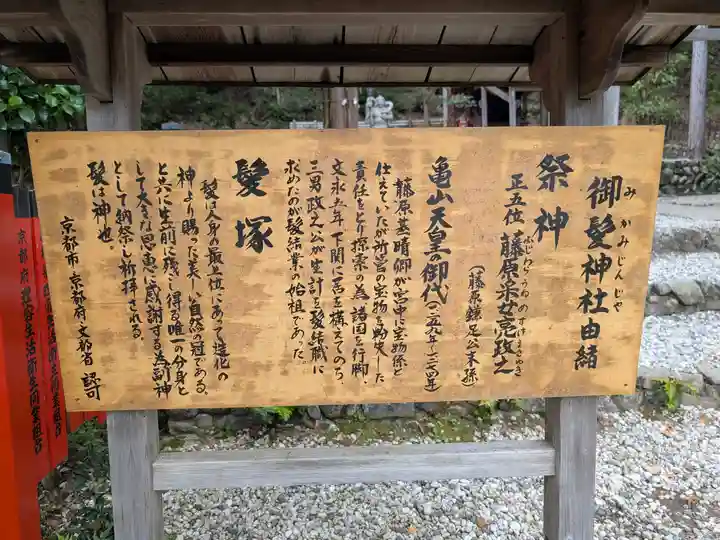 御髪神社由緒
みかみじんじゃ
祭神
正五位 藤原采女亮政之
ふじわらうねめのすけまさゆき
(藤原鎌足公末孫)
亀山天皇の御代(一二五九年〜一二七四年)
藤原基晴卿が宮中に宝物係と
仕えていたが所管の宝物を紛失した
責任をとり探索の為諸国を行脚、
文永五年下関に居を構えてのち、
三男政之公が生計を髪結職に
求めたのが髪結業の始祖であった。
髪塚
髪は人身の最上位にあって造化の
神より賜った美しい自然の冠である。
と共に生前に残し得る唯一の分身と
して大きな恩恵に感謝する為訓神
として納祭し祈拝される。
髪は神也。
京都市 京都府・文部省 認可
京都府
生活衛生同業組合